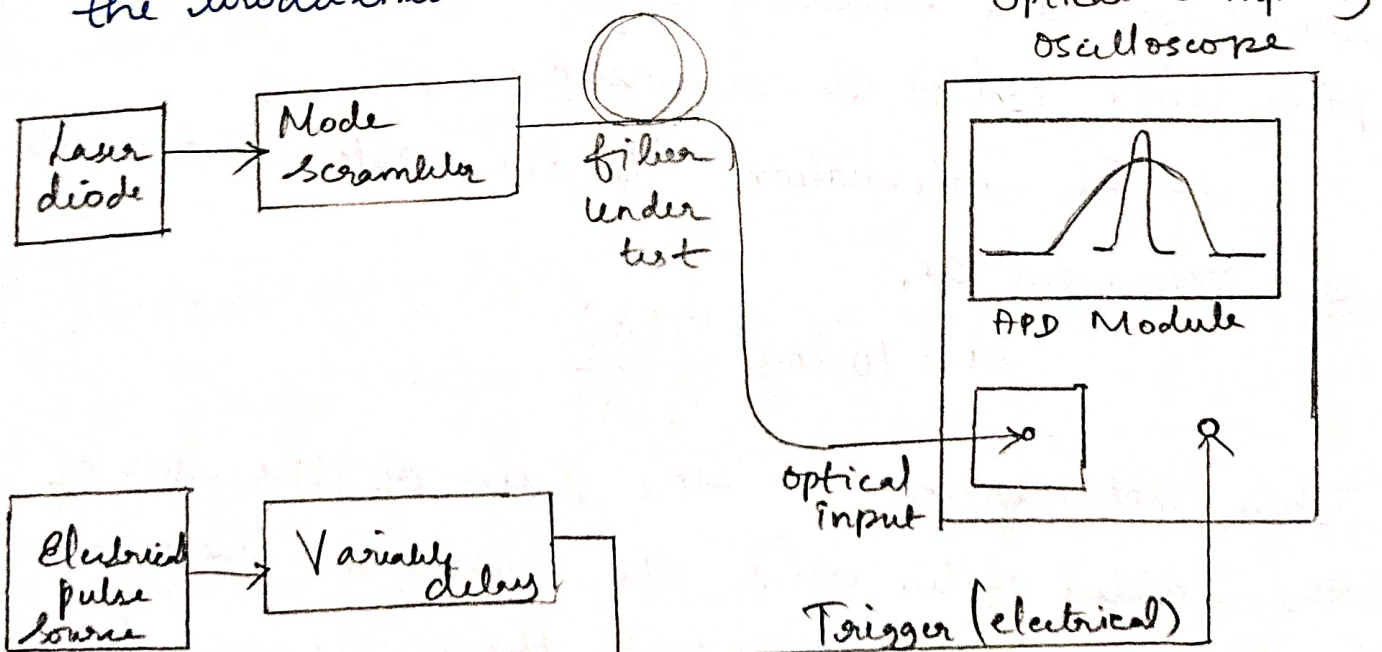 the
Optical
Oscilloscope
Laser
diode
Mode
Scrambler
fiber
under
test
APD Module
optical
input
Electrical
pulse
Source
Variable
delay
Trigger (electrical)